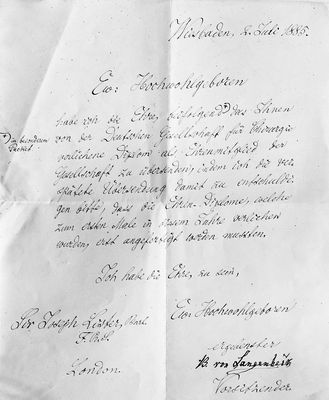 Wiesbaden, 2. Juli 1885.
Ew: Hochwohlgeboren
habe ich die Ehre, beifolgend das Ihnen
*) In besonderem
Packet.
von der Deutschen Gesellschaft für Chirurgie
verliehene Diplom als Ehrenmitglied der
Gesellschaft zu übersenden, indem ich die ver-
spätete Übersendung damit zu entschuldi-
gen bitte, dass die Ehren-Diplome, welche
zum ersten Male in diesem Jahre verliehen
wurden, erst angefertigt werden mussten.
Ich habe die Ehre, zu sein,
Ew: Hochwohlgeboren
Sir Joseph Lister, Bart.
ergebenster
B. von Langenbeck
London.
Vorsitzender.